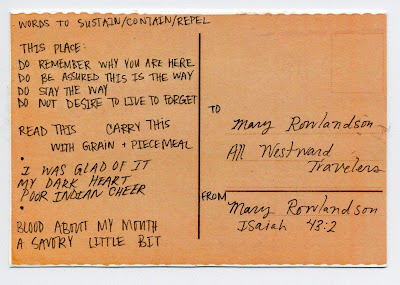 WORDS TO SUSTAIN/CONTAIN/REPEL
THIS PLACE:
DO REMEMBER WHY YOU ARE HERE
DO BE ASSURED THIS IS THE WAY
DO STAY THE WAY
DO NOT DESIRE TO LIVE TO FORGET
READ THIS CARRY THIS
WITH GRAIN + PIECEMEAL
•
I WAS GLAD OF IT
MY DARK HEART
POOR INDIAN CHEER
•
BLOOD ABOUT MY MOUTH
A SAVORY LITTLE BIT
TO
Mary Rowlandson
All Westward
Travelers
FROM
Mary Rowlandson
ISaiah 43:2